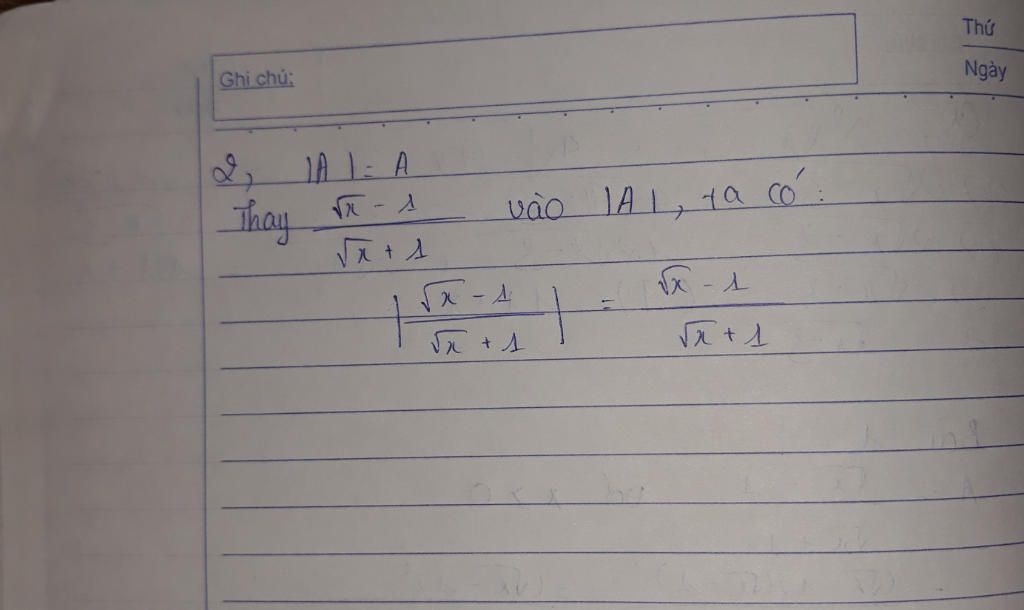 Thứ
Ghi chú:
Ngày
2, |A| = A
Thay \frac{\sqrt{x} - 1}{\sqrt{x} + 1} vào |A|, ta có:
|\frac{\sqrt{x} - 1}{\sqrt{x} + 1}| = \frac{\sqrt{x} - 1}{\sqrt{x} + 1}